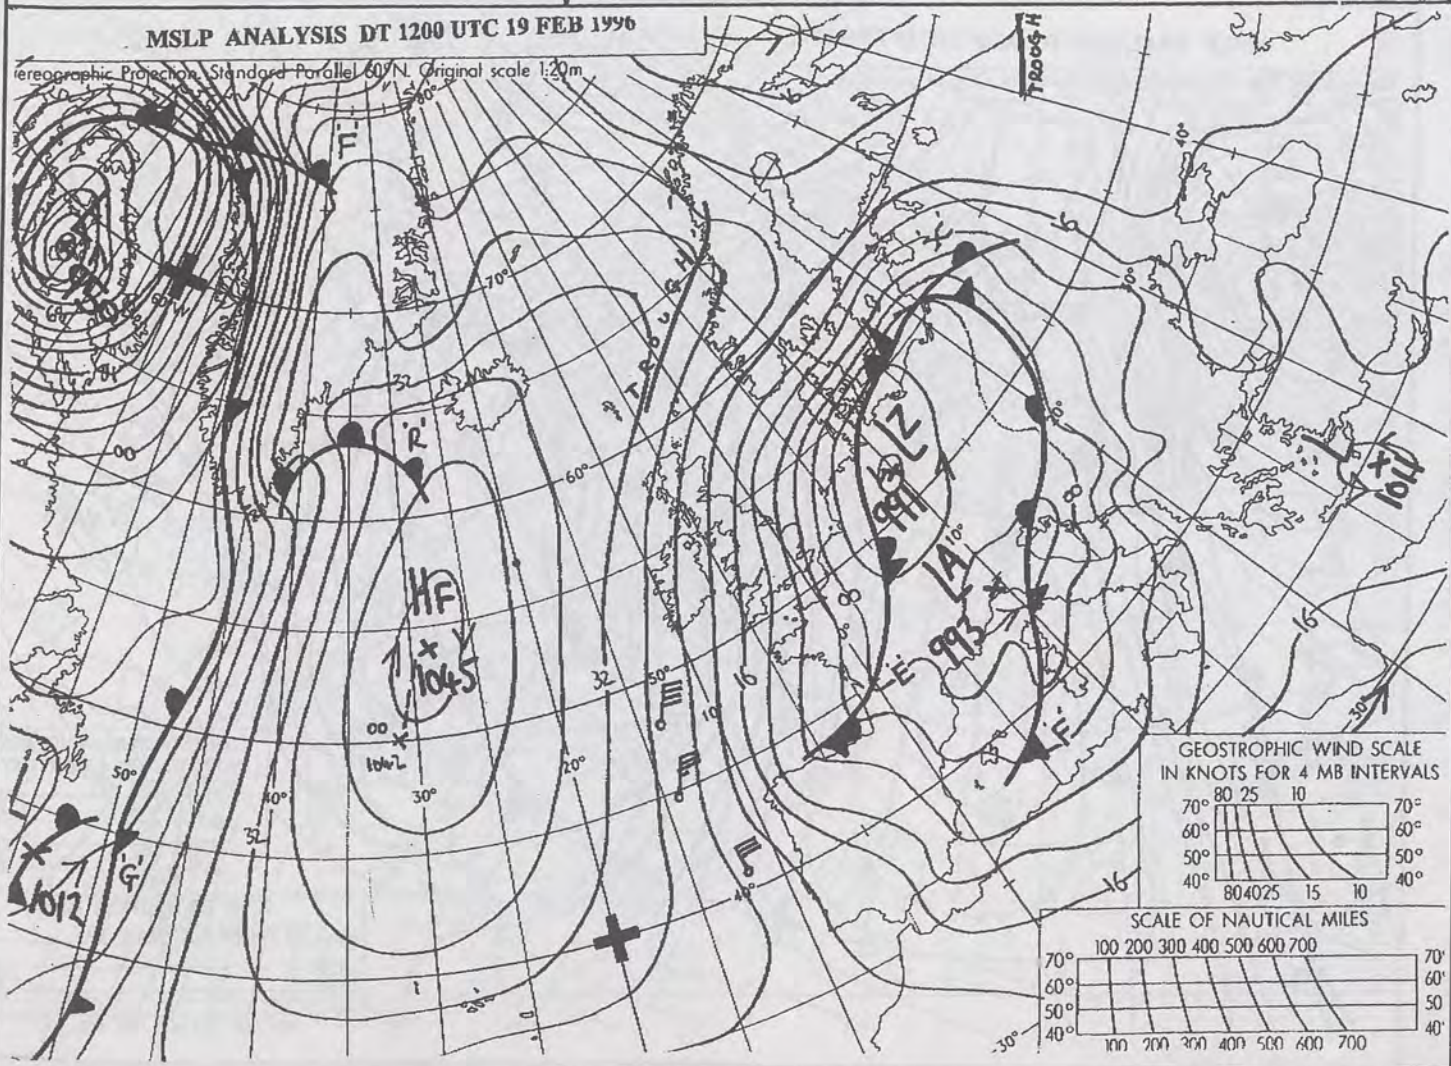 MSLP ANALYSIS DT 1200 UTC 19 FEB 1996
ereographic Projection, Standard Parallel 60°N. Original scale 1:20m
TROUGH
80°
40°
'K'
16
70°
TROUGH
32
'R'
00
60°
LZ
991
X
1014
HF
1045
00
1042
LA
10°
993
8
8
16
32
50°
16
10
'E'
'F'
30°
50°
40°
30°
20°
32
'G'
1012
40°
16
30°
GEOSTROPHIC WIND SCALE
IN KNOTS FOR 4 MB INTERVALS
80 25 10
70° 70°
60° 60°
50° 50°
40° 40°
80 40 25 15 10
SCALE OF NAUTICAL MILES
100 200 300 400 500 600 700
70° 70'
60° 60'
50° 50
40° 40'
100 200 300 400 500 600 700